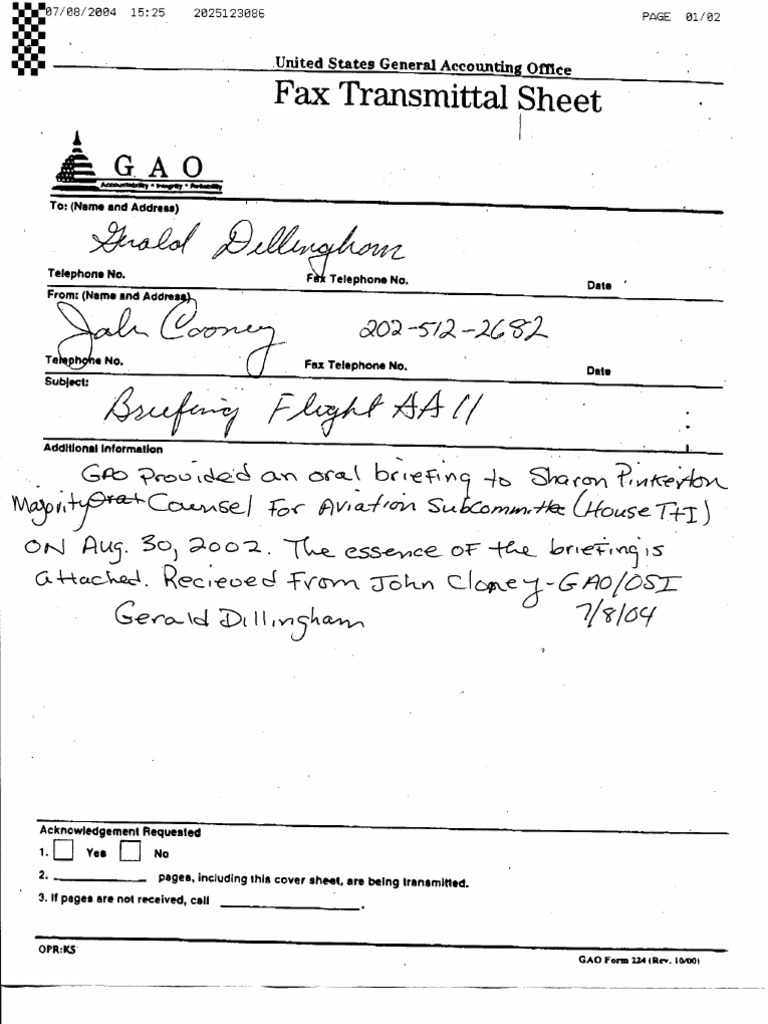 07/08/2004 15:25 2025123086 PAGE 01/02
United States General Accounting Office
Fax Transmittal Sheet
G A O
Accountability * Integrity * Reliability
To: (Name and Address)
Gerald Dillingham
Telephone No. Fax Telephone No. Date
From: (Name and Address)
John Cooney 202-512-2682
Telephone No. Fax Telephone No. Date
Subject:
Briefing Flight AA 11
Additional Information
GAO Provided an oral briefing to Sharon Pinkerton
Majority Oral Counsel For Aviation Subcommittee (House T+I)
ON Aug. 30, 2002. The essence of the briefing is
attached. Recieved From John Cloney - GAO/OSI
Gerald Dillingham 7/8/04
Acknowledgement Requested
1. Yes No
2. pages, including this cover sheet, are being transmitted.
3. If pages are not received, call .
OPR:KS
GAO Form 224 (Rev. 10/00)